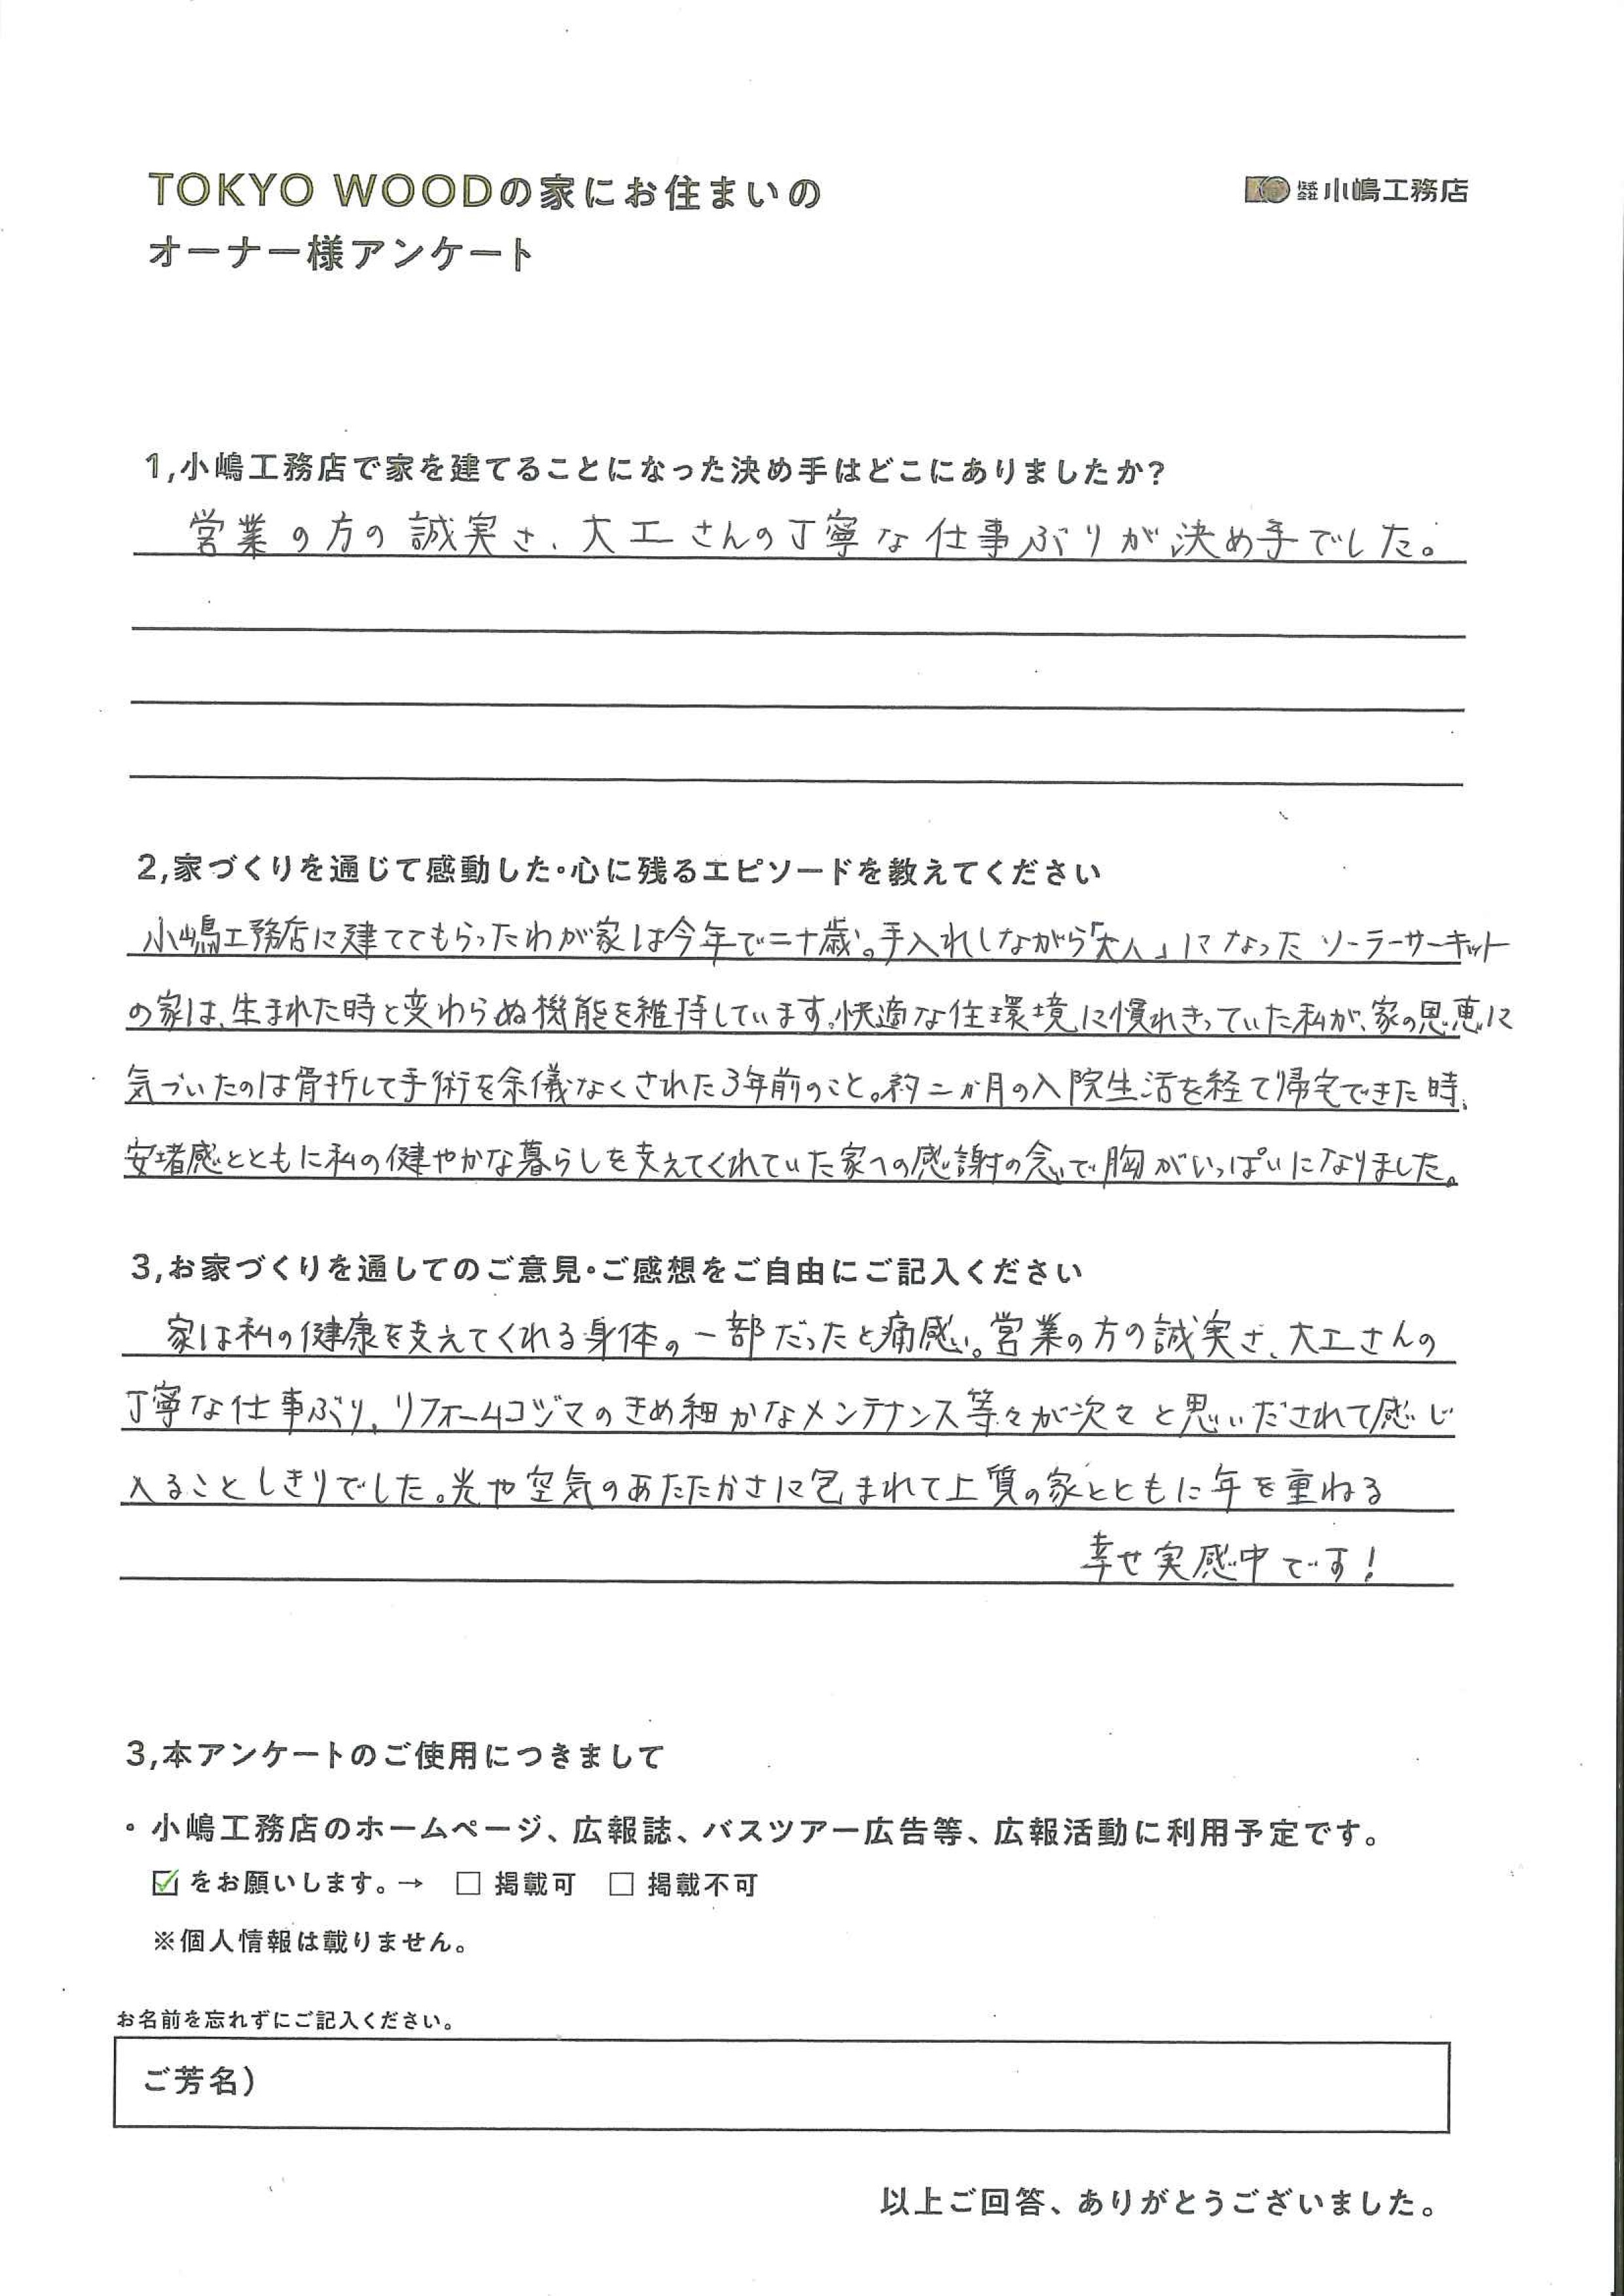 TOKYO WOODの家にお住まいの
オーナー様アンケート
株式会社 小嶋工務店
1,小嶋工務店で家を建てることになった決め手はどこにありましたか?
営業の方の誠実さ、大工さんの丁寧な仕事ぶりが決め手でした。
2,家づくりを通じて感動した・心に残るエピソードを教えてください
小嶋工務店に建ててもらったわが家は今年で二十歳。手入れしながら「大人」になったソーラーサーキット
の家は、生まれた時と変わらぬ機能を維持しています。快適な住環境に慣れきっていた私が、家の恩恵に
気づいたのは骨折して手術を余儀なくされた3年前のこと。約二か月の入院生活を経て帰宅できた時、
安堵感とともに私の健やかな暮らしを支えてくれていた家への感謝の念で胸がいっぱいになりました。
3,お家づくりを通してのご意見・ご感想をご自由にご記入ください
家は私の健康を支えてくれる身体の一部だったと痛感い。営業の方の誠実さ、大工さんの
丁寧な仕事ぶり、リフォームコジマのきめ細かなメンテナンス等々が次々と思いだされて感じ
入ることしきりでした。光や空気のあたたかさに包まれて上質の家とともに年を重ねる
幸せ実感中です!
3,本アンケートのご使用につきまして
・小嶋工務店のホームページ、広報誌、バスツアー広告等、広報活動に利用予定です。
☑をお願いします。→ □ 掲載可 □ 掲載不可
※個人情報は載りません。
お名前を忘れずにご記入ください。
ご芳名)
以上ご回答、ありがとうございました。